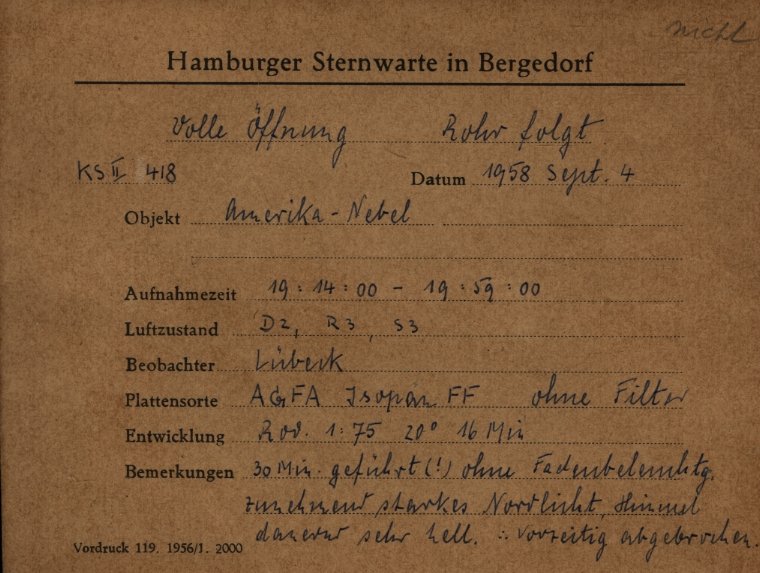 nicht
Hamburger Sternwarte in Bergedorf
Volle Öffnung Rohr folgt
KS II 418 Datum 1958 Sept. 4
Objekt Amerika-Nebel
Aufnahmezeit 19:14:00 - 19:59:00
Luftzustand D2, R3, S3
Beobachter Lübeck
Plattensorte AGFA Isopan FF ohne Filter
Entwicklung Rod. 1:75 20° 16 Min
Bemerkungen 30 Min. geführt (!) ohne Fadenbeleuchtg.
zunehmend starkes Nordlicht, Himmel
dauernd sehr hell. ∴ Vorzeitig abgebrochen.
Vordruck 119. 1956/1. 2000